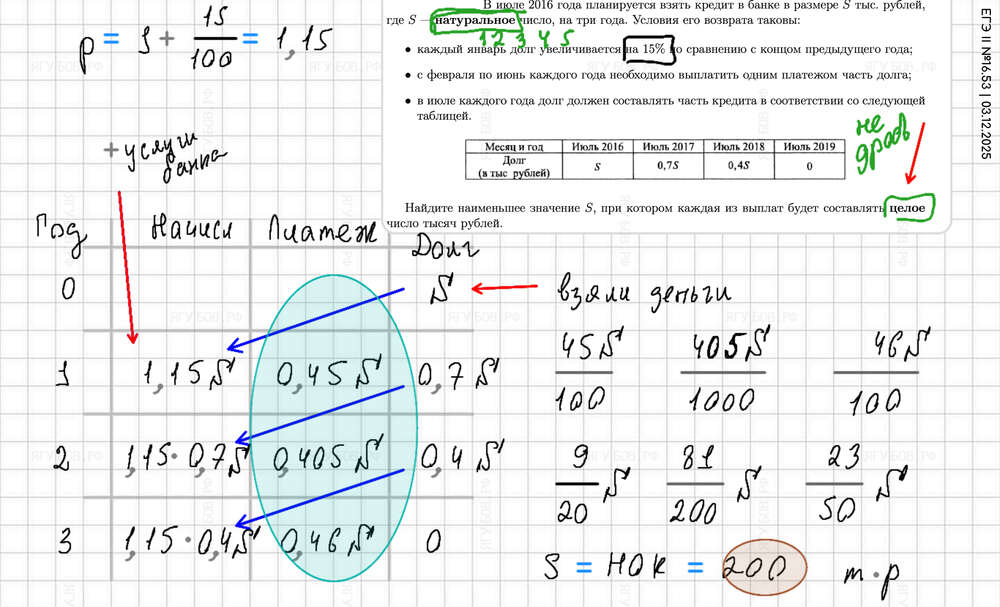 В июле 2016 года планируется взять кредит в банке в размере S тыс. рублей,
где S — натуральное число, на три года. Условия его возврата таковы:
1 2 3 4 5
• каждый январь долг увеличивается на 15% по сравнению с концом предыдущего года;
• с февраля по июнь каждого года необходимо выплатить одним платежом часть долга;
• в июле каждого года долг должен составлять часть кредита в соответствии со следующей
таблицей.
Месяц и год Июль 2016 Июль 2017 Июль 2018 Июль 2019
Долг (в тыс рублей) S 0,7S 0,4S 0
не дробь
Найдите наименьшее значение S, при котором каждая из выплат будет составлять целое
число тысяч рублей.
ЕГЭ II №16.53 | 03.12.2025
p = 1 + 15/100 = 1,15
+ услуги банка
Год Начисл Платеж Долг
0 S ← взяли деньги
1 1,15S 0,45S 0,7S
2 1,15·0,7S 0,405S 0,4S
3 1,15·0,4S 0,46S 0
45S/100 405S/1000 46S/100
9/20 S 81/200 S 23/50 S
S = НОК = 200 т.р
ЯГУБОВ.РФ